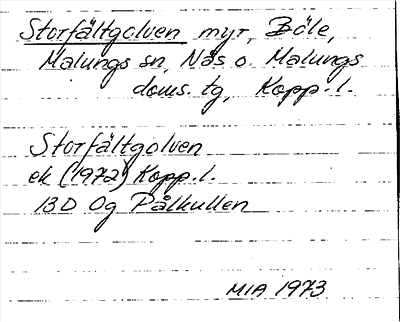 Storfältgolven myr, Böle,
Malungs sn, Näs o. Malungs
doms. tg, Kopp. l.
Storfältgolven
ek (1972) Kopp. l.
13D 0g Pålkullen
MIA 1973